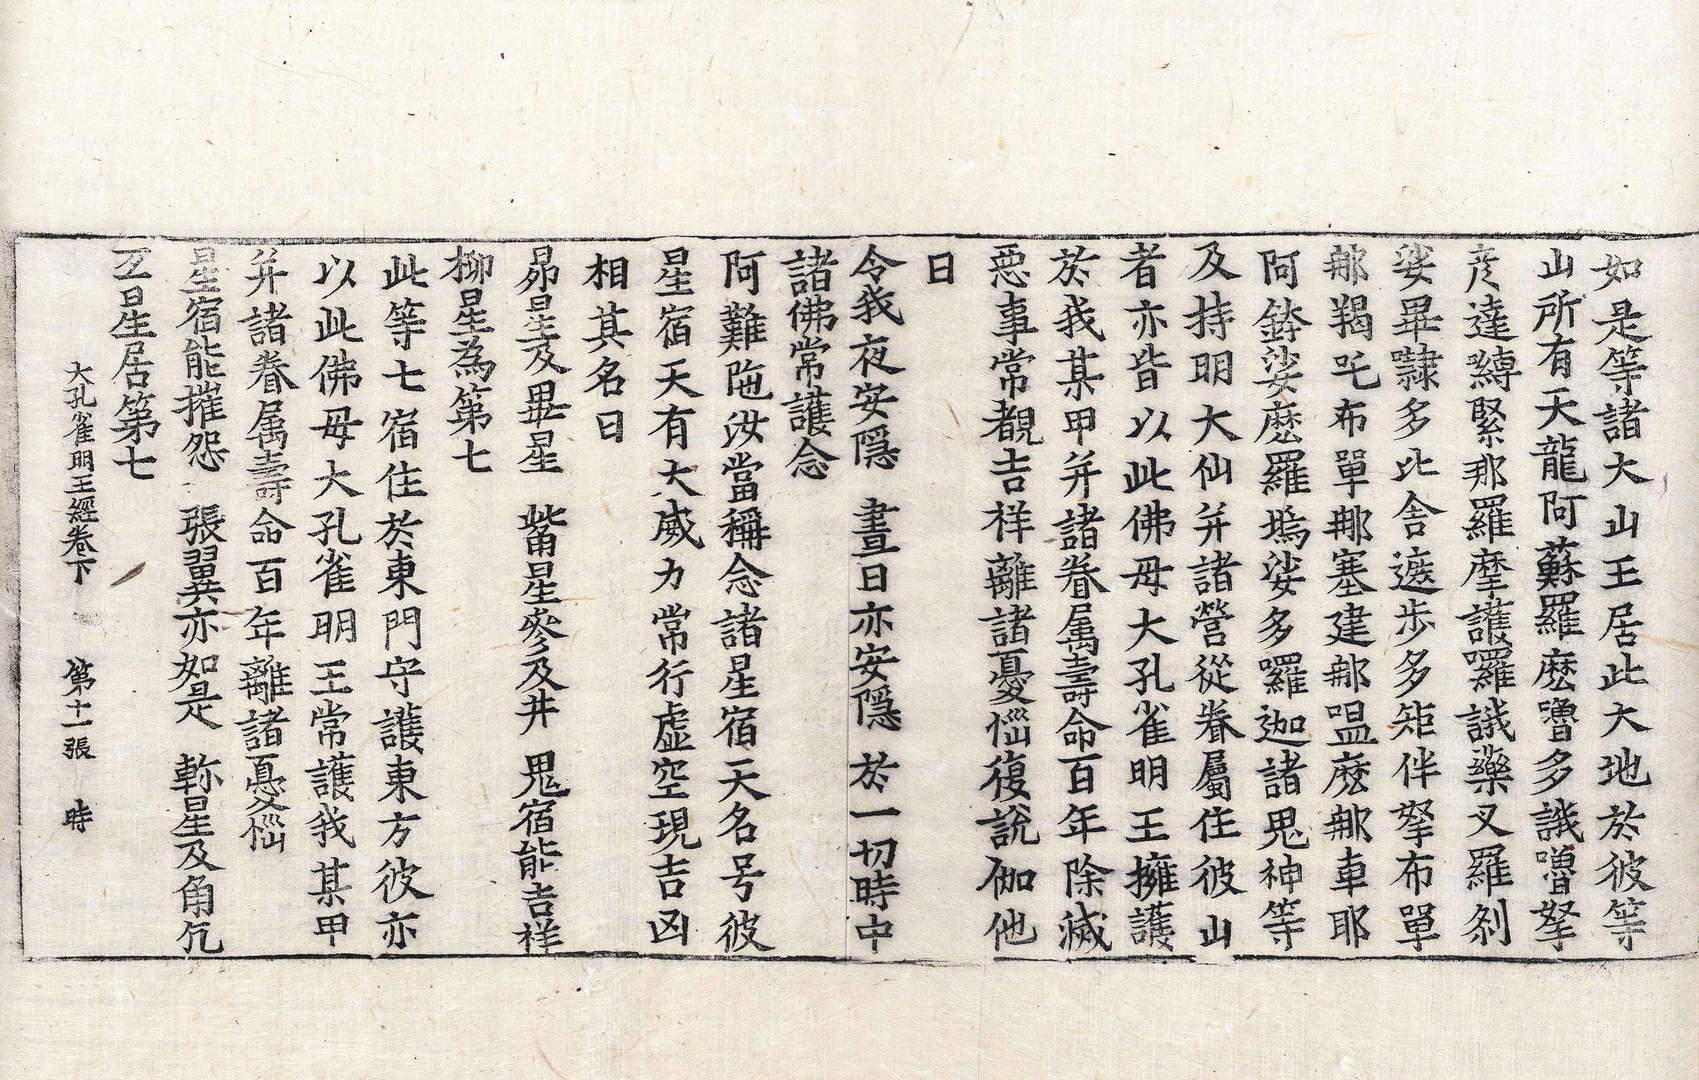 如是等諸大山王居此大地於彼等
山所有天龍阿蘇羅麽嚕多誐嚕拏
彦達嚩緊那羅摩護囉誐藥叉羅剎
娑畢隸多比舍遮步多矩伴拏布單
那羯吒布單那塞建那嗢麽那車耶
阿鉢娑麽羅塢娑多囉迦諸鬼神等
及持明大仙并諸營從眷屬住彼山
者亦皆以此佛母大孔雀明王擁護
於我某甲并諸眷属壽命百年除滅
惡事常覩吉祥離諸憂惱復說伽他
曰
令我夜安隱　晝日亦安隱　於一切時中
諸佛常護念
阿難陁汝當稱念諸星宿天名号彼
星宿天有大威力常行虛空現吉凶
相其名曰
昴星及畢星　觜星參及井　鬼宿能吉祥
柳星為第七
此等七宿住於東門守護東方彼亦
以此佛母大孔雀明王常護我某甲
并諸眷属壽命百年離諸憂惱
星宿能摧怨　張翼亦如是　軫星及角亢
互星居第七
大孔雀明王經卷下　第十一張　時